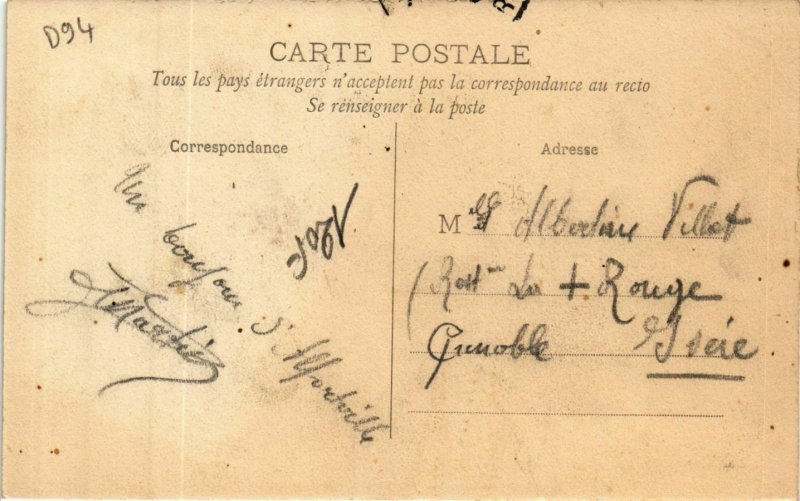 D94
CARTE POSTALE
Tous les pays étrangers n'acceptent pas la correspondance au recto
Se renseigner à la poste
Correspondance
Un bonjour d'Alfortville
Adresse
Mlle Albertine Villet
Rest La + Rouge
Grenoble Isère